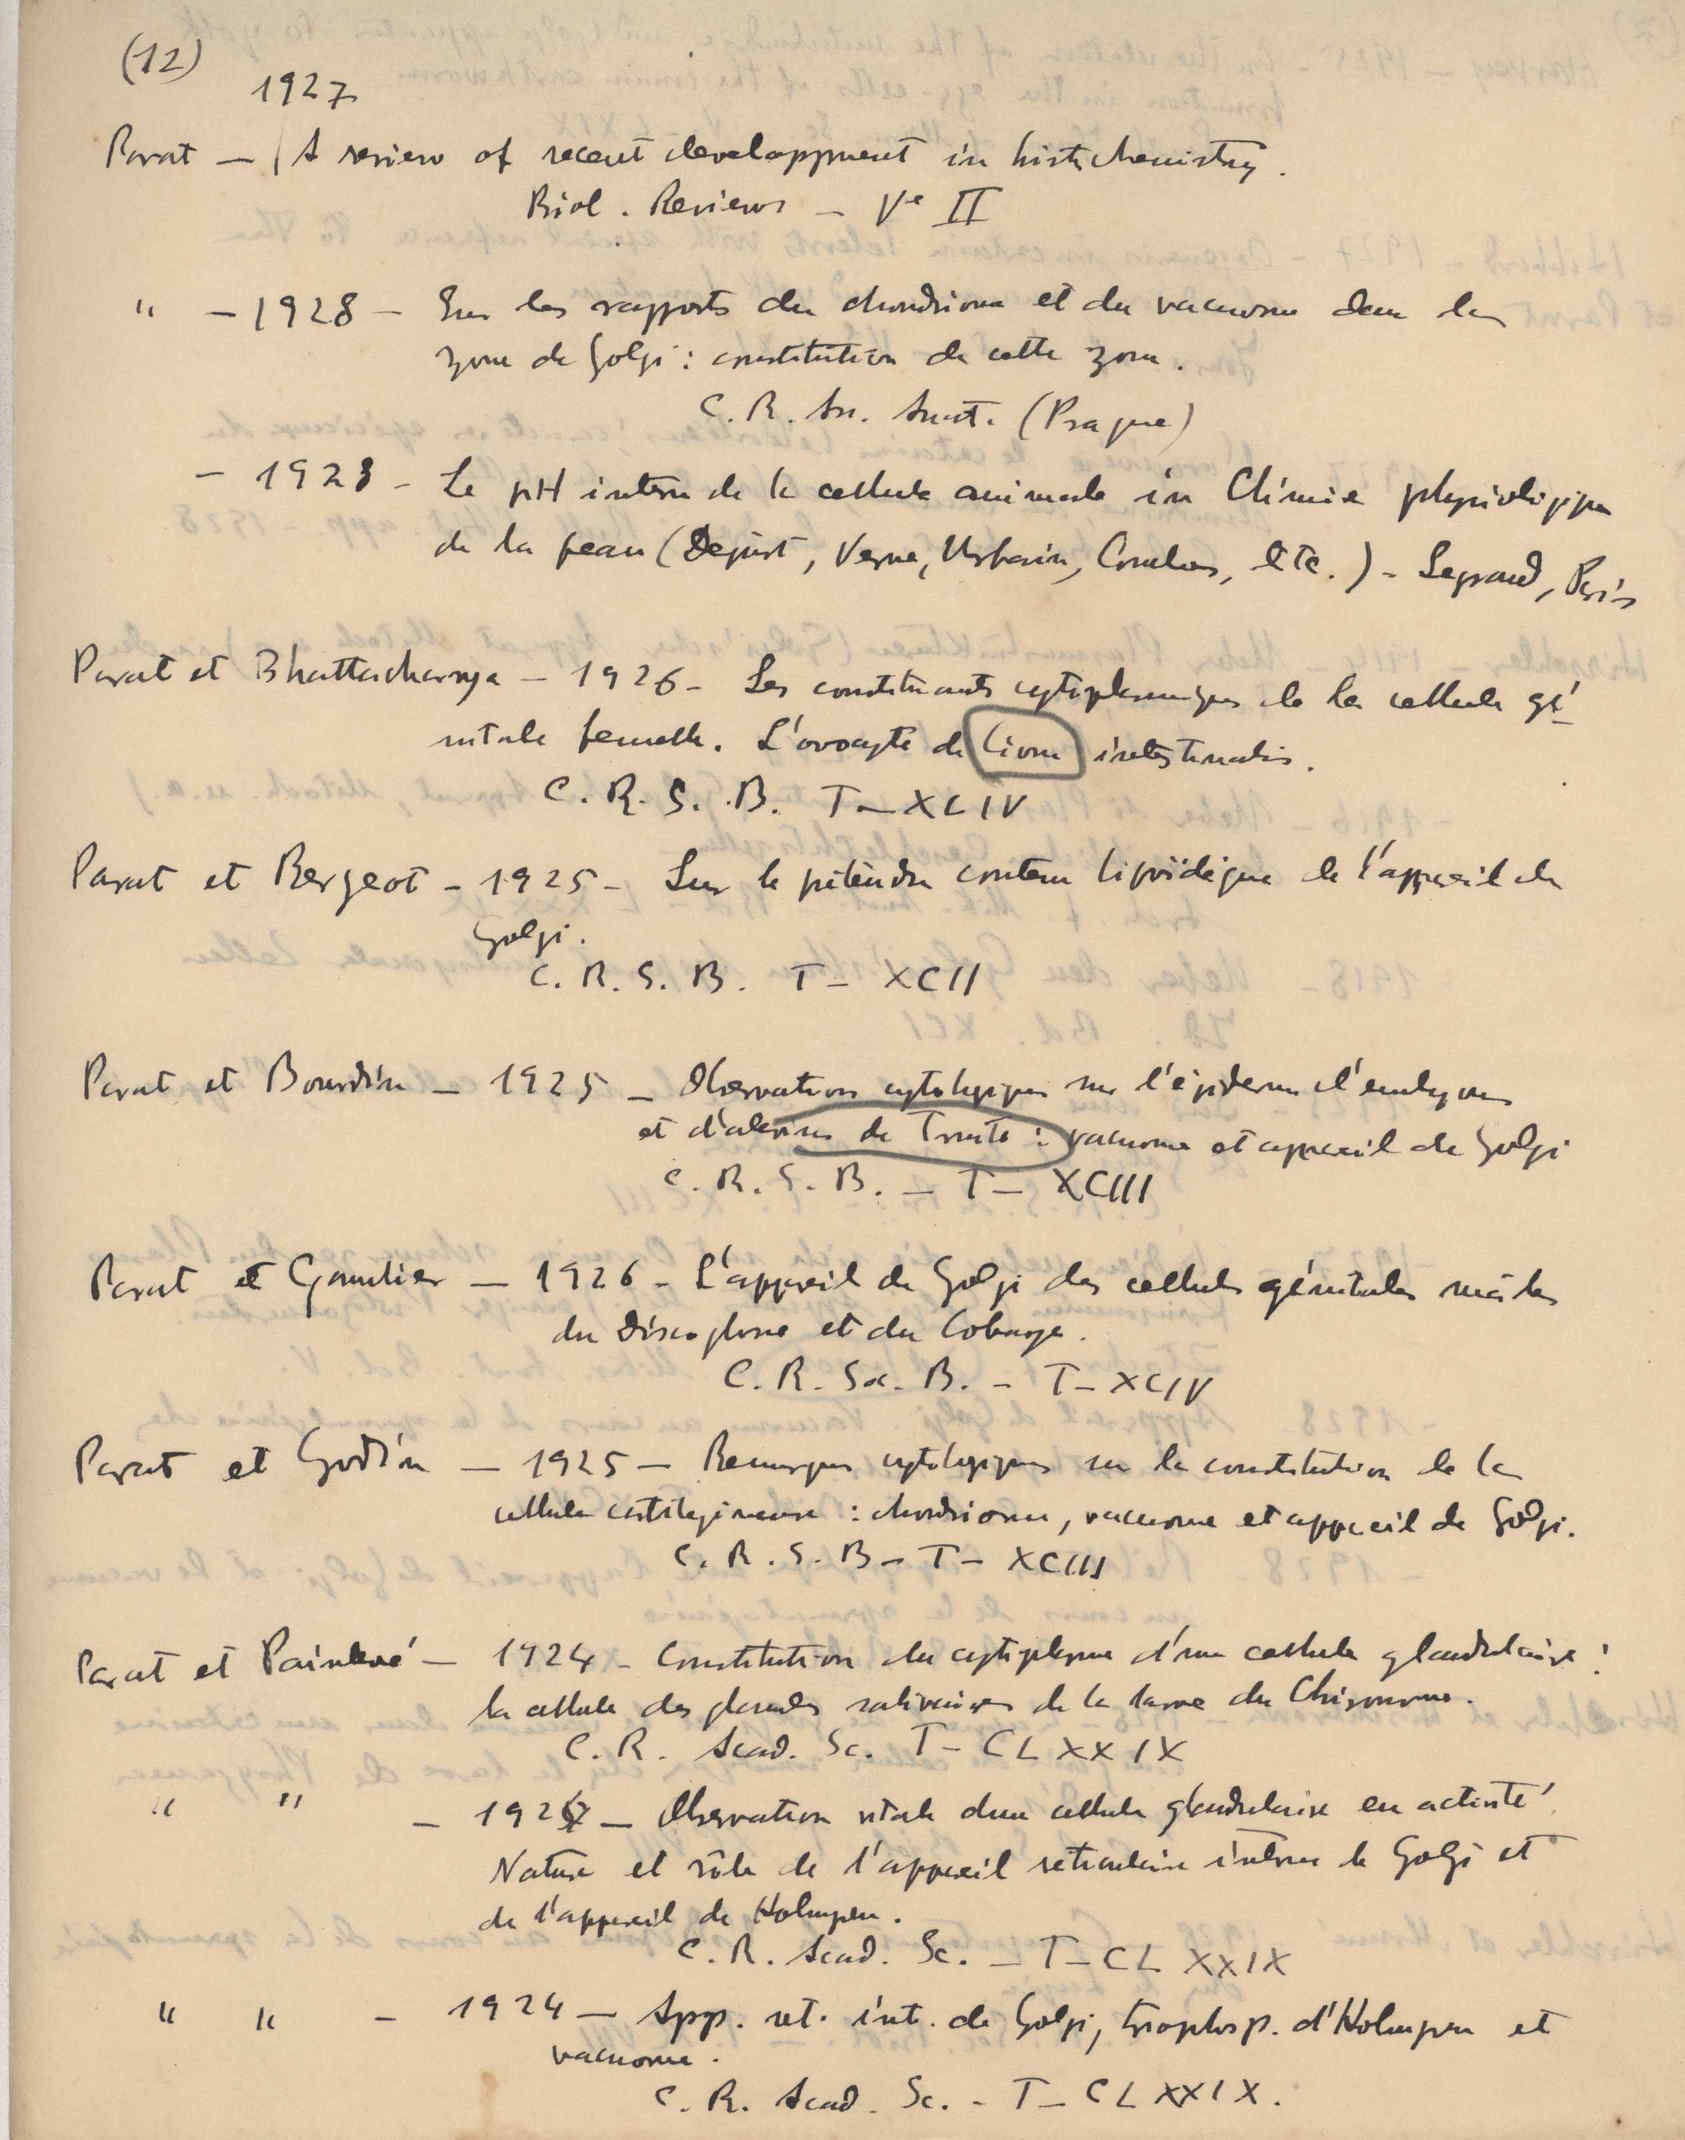 (12)
1927
Parat — / A review of recent developpment in histochemistry.
Biol. Reviews — Ve II
" — 1928 — Sur les rapports du chondriome et du vacuome dans la
zone de Golgi : constitution de cette zone.
C. R. An. Anat. (Prague)
— 1928 — Le pH interne de la cellule animale in Chimie physiologique
de la peau (Dejust, Verne, Urbain, Combes, etc.) — Legrand, Paris
Parat et Bhattacharya — 1926 — Les constituants cytoplasmiques de la cellule gé-
nitale femelle. L'ovocyte de Ciona intestinalis.
C. R. S. B. T — XCIV
Parat et Bergeot — 1925 — Sur le prétendu contenu lipoïdique de l'appareil de
Golgi.
C. R. S. B. T — XCII
Parat et Bourdin — 1925 — Observations cytologiques sur l'épiderme d'embryons
et d'alevins de Truite : vacuome et appareil de Golgi
C. R. S. B. — T — XCIII
Parat et Gautier — 1926 — L'appareil de Golgi des cellules génitales mâles
du Discoglosse et du Cobaye.
C. R. Soc. B. — T — XCIV
Parat et Godin — 1925 — Remarques cytologiques sur la constitution de la
cellule cartilagineuse : chondriome, vacuome et appareil de Golgi.
C. R. S. B — T — XCIII
Parat et Painlevé — 1924 — Constitution du cytoplasme d'une cellule glandulaire :
la cellule des glandes salivaires de la larve du Chironome.
C. R. Acad. Sc. T — CLXXIX
" " — 1924 — Observation vitale d'une cellule glandulaire en activité.
Nature et rôle de l'appareil réticulaire interne de Golgi et
de l'appareil de Holmgren.
C. R. Acad. Sc. — T — CLXXIX
" " — 1924 — App. ret. int. de Golgi, trophosp. d'Holmgren et
vacuome.
C. R. Acad. Sc. — T — CLXXIX.